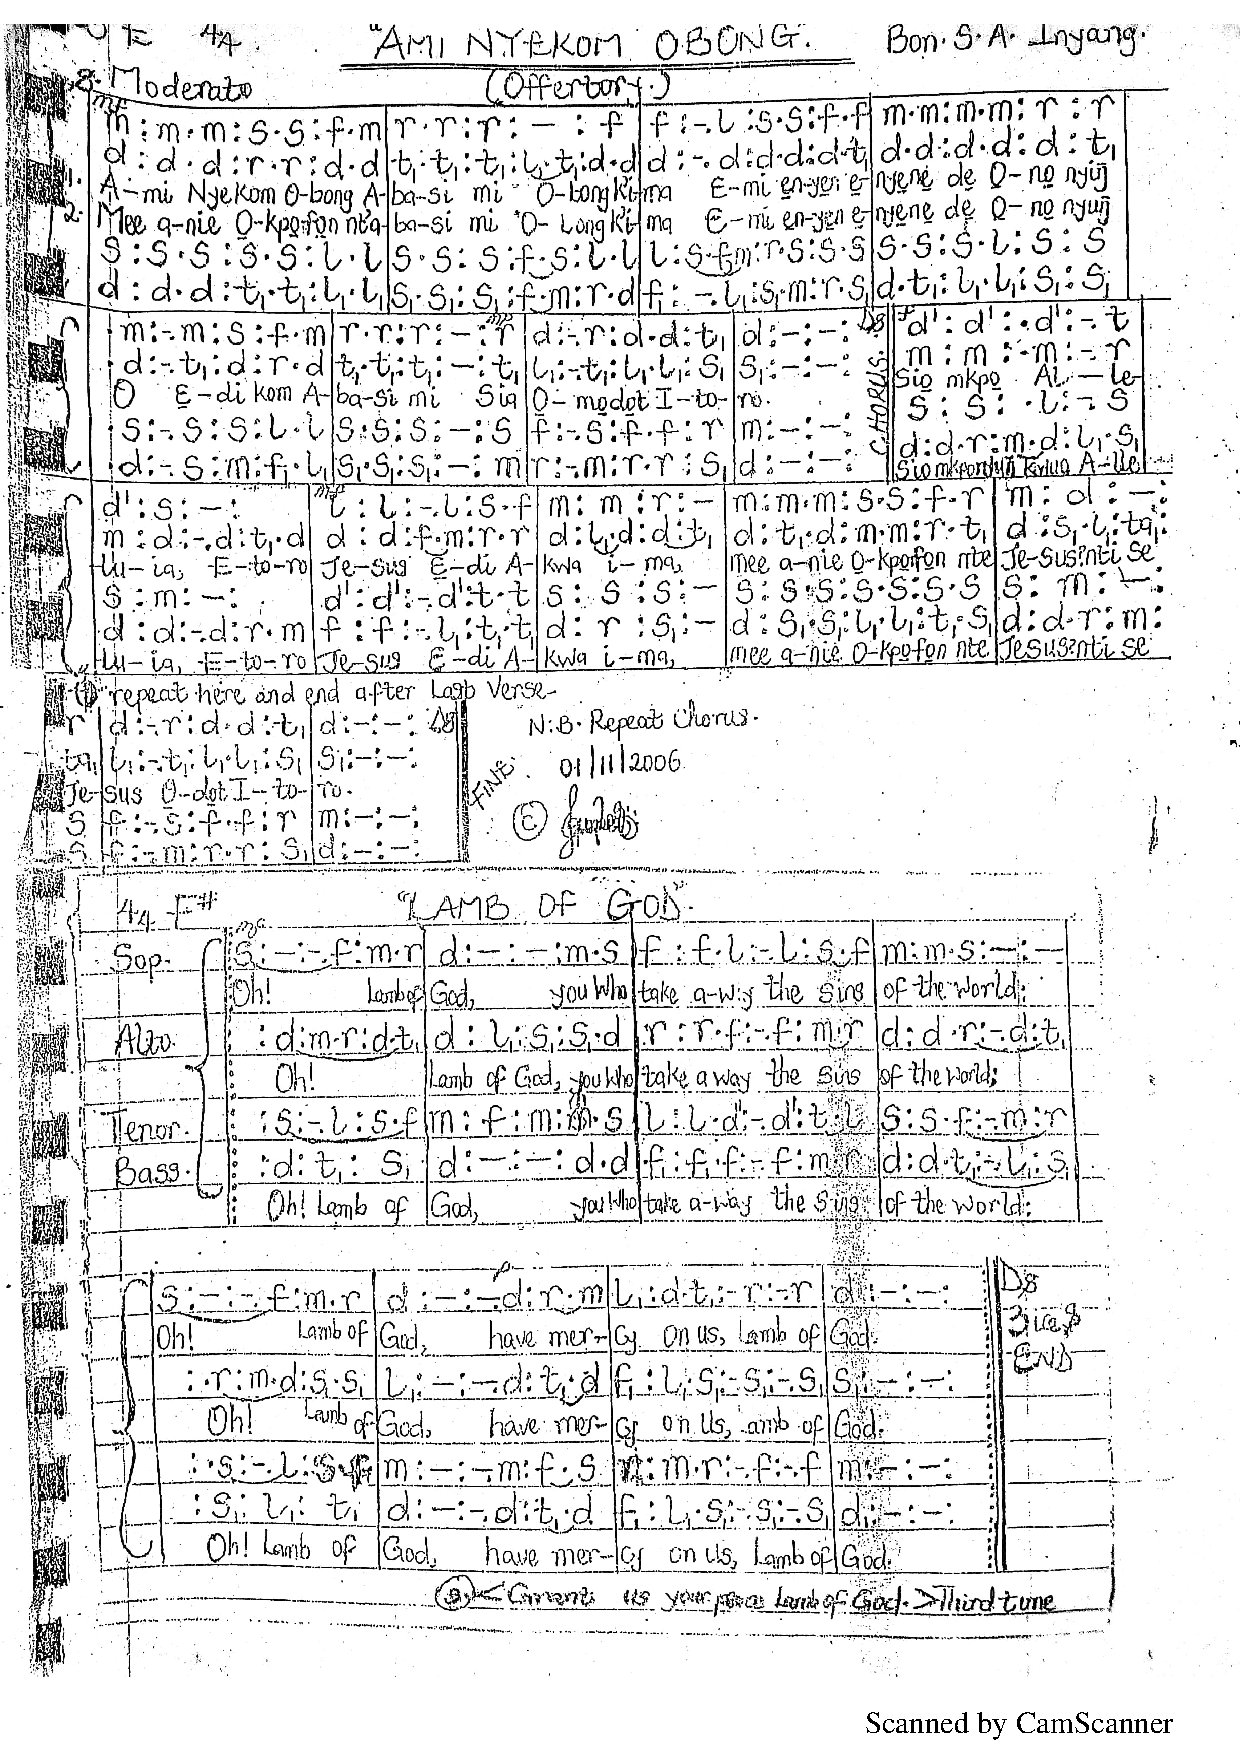 E 4/4 "AMI NYEKOM OBONG." Bon. S. A. Inyang.
Moderato (Offertory.)
mf
m : m · m : s · s : f · m | r · r : r : – : f | f : -. l : s · s : f · f | m · m : m · m : r : r
d : d · d : r · r : d · d | t₁ · t₁ : t₁ : l₁ · t₁ : d · d | d : -. d : d · d : d · t₁ | d · d : d · d : d : t₁
1. A-mi Nyekom O-bong A- | ba-si mi O-bong Ki- | ma E-mi en-yen e- | nyene de O-no nyuŋ
2. Mee a-nie O-kpofon nta- | ba-si mi O-bong Ki- | ma E-mi en-yen e- | nyene de O-no nyuŋ
s : s · s : s · s : l · l | s · s : s : f · s : l · l | l : s · f m : r · s : s · s | s · s : s · l : s : s
d : d · d : t₁ · t₁ : l₁ · l₁ | s₁ · s₁ : s₁ : f · m : r · d | f₁ : -. l₁ : s₁ · m : r · s₁ | d · t₁ : l₁ · l₁ : s₁ : s₁
m : -. m : s : f · m | r · r : r : – : r | d : -. r : d · d : t₁ | d : – : – : D.S | d' : d' : · d' : -. t
d : -. t₁ : d : r · d | t₁ · t₁ : t₁ : – : t₁ | l₁ : -. t₁ : l₁ · l₁ : s₁ | s₁ : – : – : | CHORUS. | m : m : · m : -. r
O E-di kom A- | ba-si mi Sia | O-modot I-to- | ro. | Sio mkpo Al-le-
s : -. s : s : l · l | s · s : s : – : s | f : -. s : f · f : r | m : – : – : | s : s : · l : -. s
d : -. s : m : f₁ · l₁ | s₁ · s₁ : s₁ : – : m | r : -. m : r · r : s₁ | d : – : – : | d : d · r : m · d : l₁ · s₁
d' : s : – : | l : l : -. l : s · f | m : m : r : – | m : m · m : s · s : f · r | m : d : – :
m : d : -. d : t₁ · d | d : d : f · m : r · r | d : l₁ · d : d : t₁ | d : t₁ · d : m · m : r · t₁ | d : s₁ · l₁ : ta₁ :
lu-ia, E-to-ro | Je-sus E-di A- | kwa i-ma, | mee a-nie O-kpofon nte | Je-sus? nti se
s : m : – : | d' : d' : -. d' : t · t | s : s : s : – | s : s · s : s · s : s · s | s : m : – :
d : d : -. d : r · m | f : f : -. l₁ : t₁ · t₁ | d : r : s₁ : – | d : s₁ · s₁ : l₁ · l₁ : t₁ · s₁ | d : d · r : m :
lu-ia, E-to-ro | Je-sus E-di A- | kwa i-ma, | mee a-nie O-kpofon nte | Jesus? nti se
repeat here and end after Last Verse-
r | d : -. r : d · d : t₁ | d : – : – : D.S
ta₁ | l₁ : -. t₁ : l₁ · l₁ : s₁ | s₁ : – : – :
Je- | sus O-dot I-to- | ro.
s | f : -. s : f · f : r | m : – : – :
s | f : -. m : r · r : s₁ | d : – : – :
N.B. Repeat Chorus.
01/11/2006
FINE.
©
4/4 F# "LAMB OF GOD".
mf
Sop. s : – : -. f : m · r | d : – : – : m · s | f : f · l : -. l : s · f | m : m · s : – : –
Oh! Lamb of | God, you Who | take a-way the sins | of the world;
Alto. : d : m · r : d · t₁ | d : l₁ : s₁ : s₁ · d | r : r · f : -. f : m · r | d : d · r : -. d : t₁
Oh! | Lamb of God, you Who | take away the sins | of the world;
Tenor. : s : -. l : s · f | m : f : m : m · s | l : l · d' : -. d' : t · l | s : s · f : -. m : r
Bass. : d : t₁ : s₁ | d : – : – : d · d | f₁ : f₁ · f₁ : -. f : m · r | d : d · t₁ : -. l₁ : s₁
Oh! Lamb of | God, you Who | take a-way the sins | of the world;
p
s : – : -. f : m · r | d : – : -. d : r · m | l₁ : d · t₁ : -. r : -. r | d : – : – :
Oh! Lamb of | God, have mer- | cy on us, Lamb of | God.
: r : m · d : s₁ · s₁ | l₁ : – : -. d : t₁ · d | f₁ : l₁ · s₁ : -. s₁ : -. s₁ | s₁ : – : – :
Oh! Lamb of | God, have mer- | cy on us, amb of | God.
: s : -. l : s · f | m : – : -. m : f · s | : m · r : -. f : -. f | m : – : – :
: s₁ : l₁ : t₁ | d : – : -. d : t₁ · d | f₁ : l₁ · s₁ : -. s₁ : -. s₁ | d : – : – :
Oh! Lamb of | God, have mer- | cy on us, Lamb of | God.
D.S
END
< Grant us your peace Lamb of God. > Third time
Scanned by CamScanner